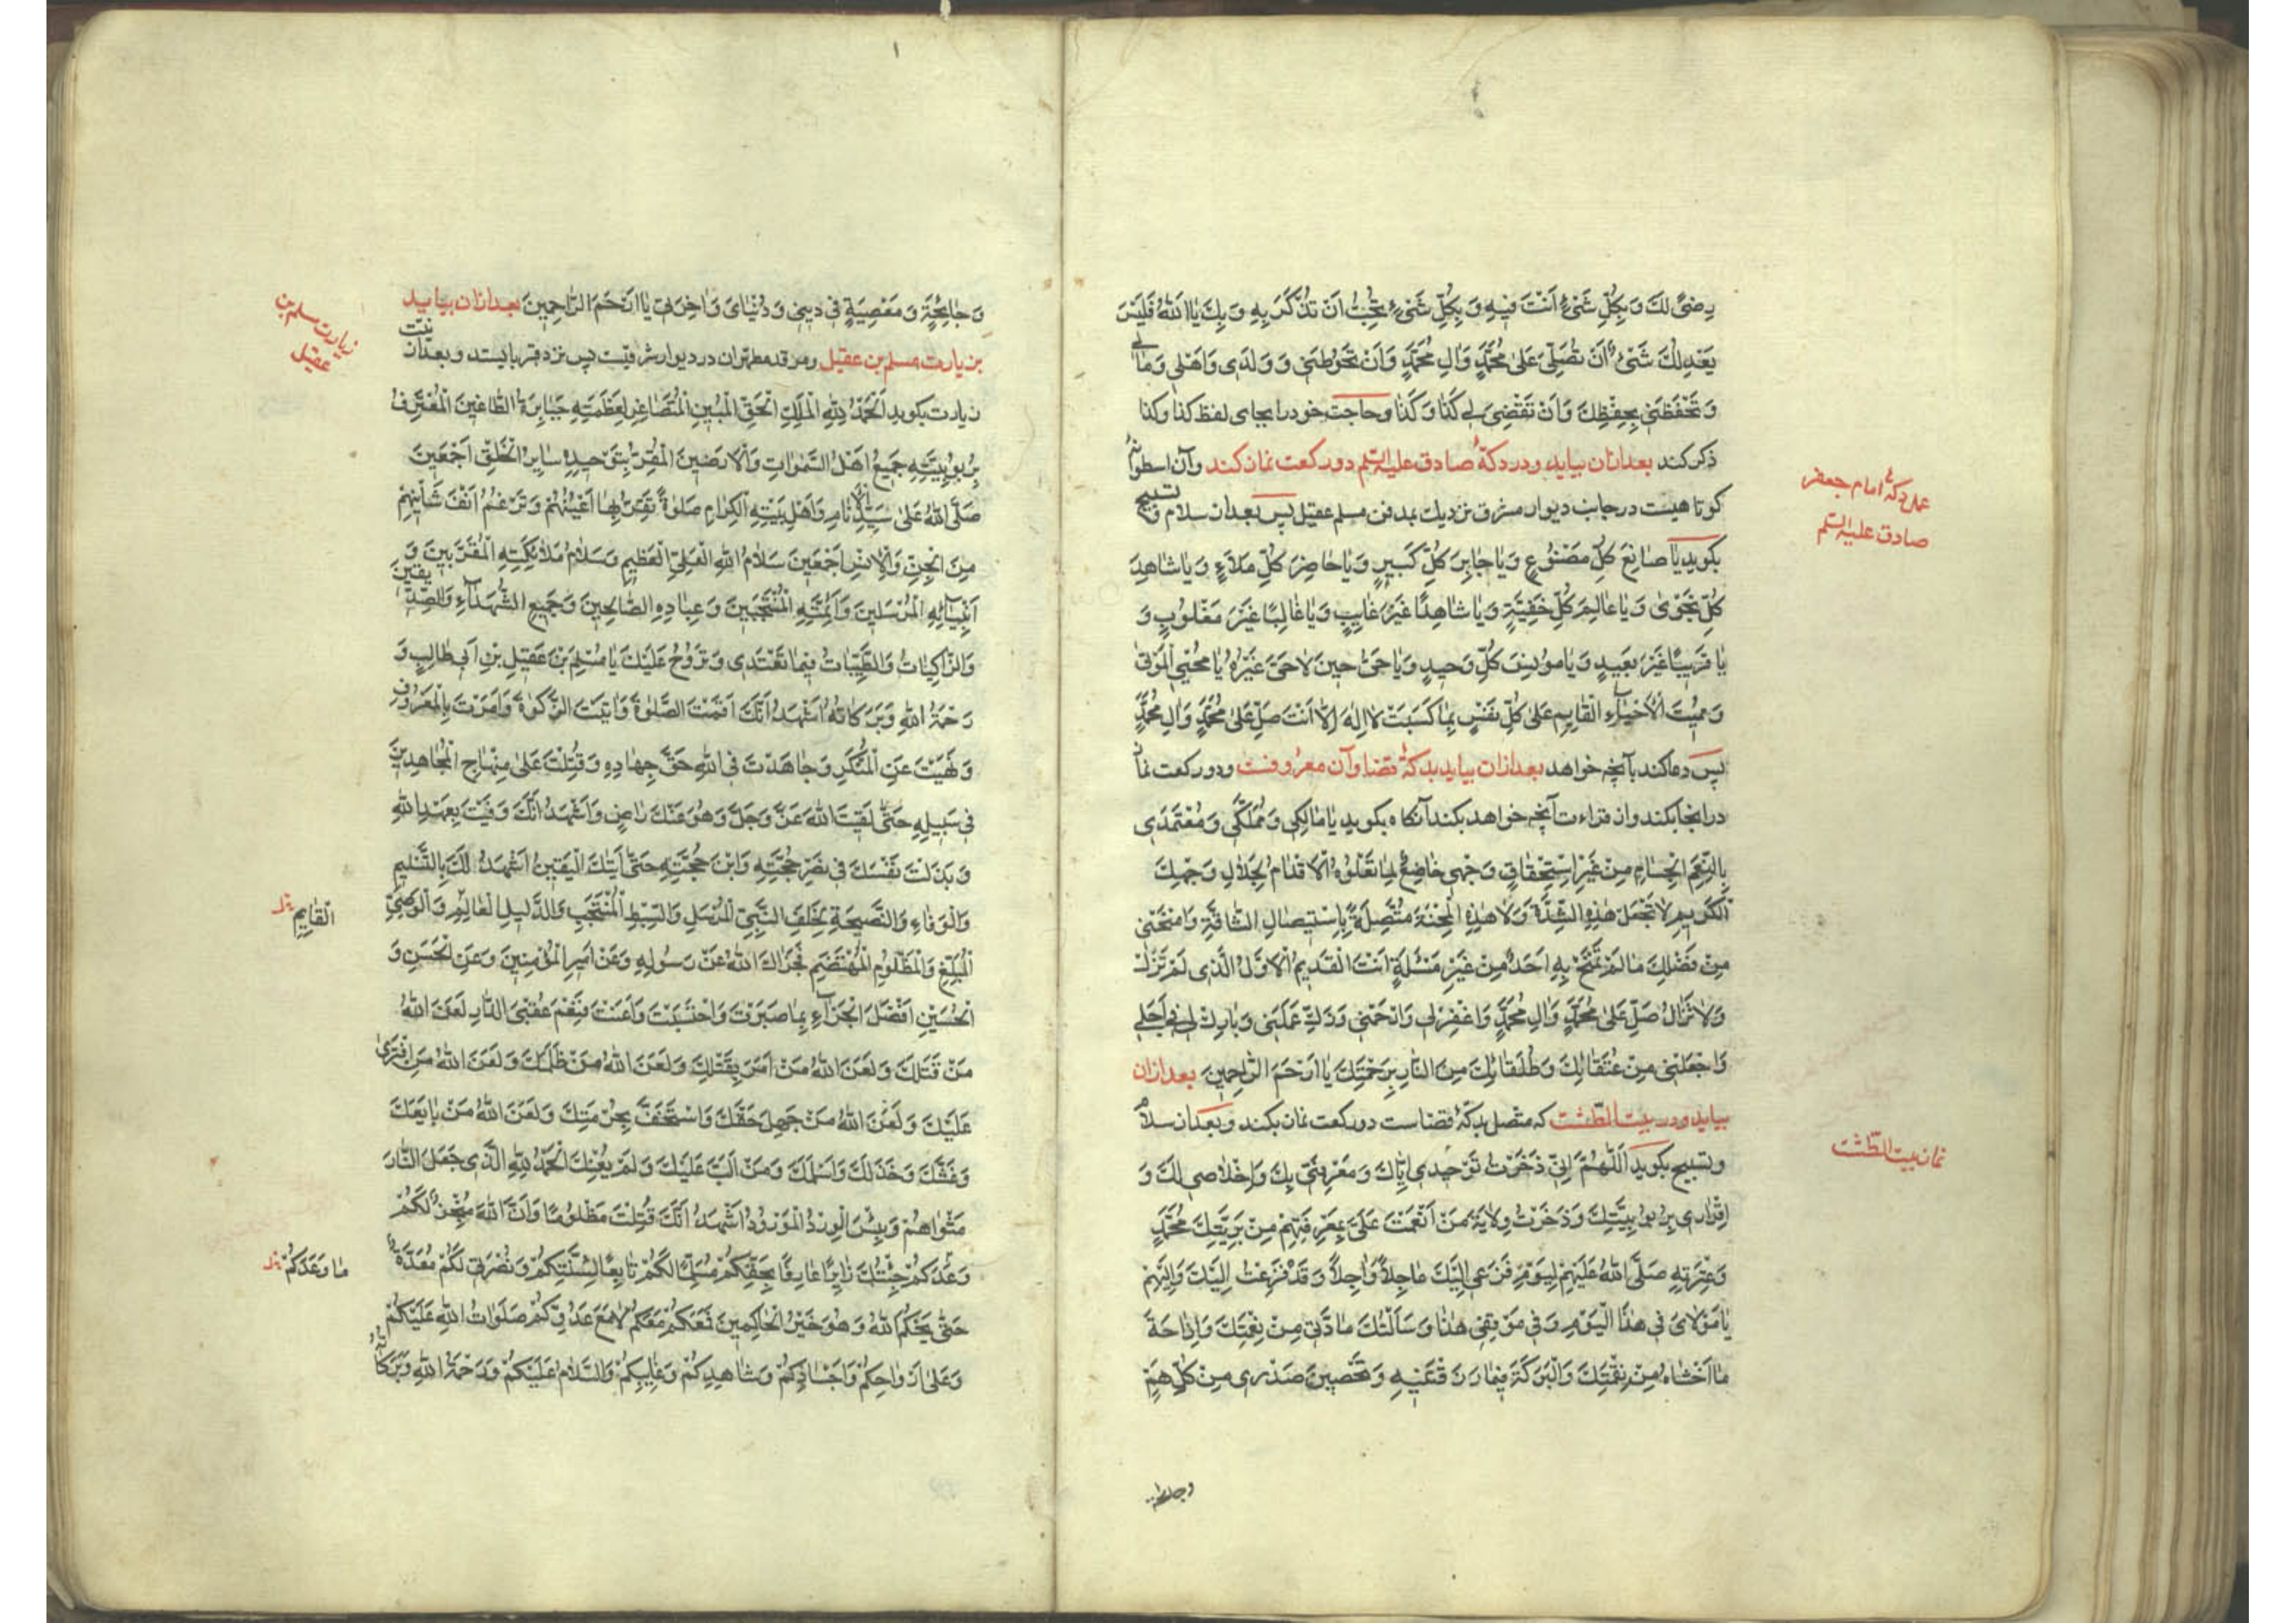 رِضىً لَكَ وَبِكُلِّ شَیْءٍ اَنْتَ فيهِ وَبِكُلِّ شَیْءٍ تُحِبُّ اَنْ تُذْكَرَ بِهِ وَبِكَ يٰا اَللّٰهُ فَلَيْسَ
يَعْدِلُكَ شَیْءٌ اَنْ تُصَلِّیَ عَلىٰ مُحَمَّدٍ وَاٰلِ مُحَمَّدٍ وَاَنْ تَحُوطَنی وَوَلَدی وَاَهْلی وَمٰالی
وَتَحْفَظَنی بِحِفْظِكَ وَاَنْ تَقْضِیَ لی كَذٰا وَكَذٰا وحاجت خود را بجای لفظ كذا وكذا
ذكر كند بعد ازان بیاید ودر دكهٔ صادق علیه السلم دو ركعت نماز كند وآن اسطوانهٔ
كوتاهیست در جانب دیوار مشرق نزدیك بمدفن مسلم عقیل پس بعد از سلام و تسبیح
بكوید يٰا صٰانِعَ كُلِّ مَصْنُوعٍ وَيٰا جٰابِرَ كُلِّ كَسيرٍ وَيٰا حٰاضِرَ كُلِّ مَلَاءٍ وَيٰا شٰاهِدَ
كُلِّ نَجْوىٰ وَيٰا عٰالِمَ كُلِّ خَفِيَّةٍ وَيٰا شٰاهِدًا غَيْرَ غٰايِبٍ وَيٰا غٰالِبًا غَيْرَ مَغْلُوبٍ وَ
يٰا قَريبًا غَيْرَ بَعيدٍ وَيٰا مُونِسَ كُلِّ وَحيدٍ وَيٰا حَیُّ حينَ لٰا حَیَّ غَيْرُهُ يٰا مُحْيِیَ الْمَوْتىٰ
وَمُميتَ الْاَحْيٰآءِ الْقٰايِمِ عَلىٰ كُلِّ نَفْسٍ بِمٰا كَسَبَتْ لٰا اِلٰهَ اِلّٰا اَنْتَ صَلِّ عَلىٰ مُحَمَّدٍ وَاٰلِ مُحَمَّدٍ
پس دعا كند بآنچه خواهد بعد ازان بیاید بدكهٔ قضا وآن معروفست ودو ركعت نماز
در انجا بكند واز قراءت آنچه خواهد بكند آنكاه بكوید يٰا مٰالِكی وَمُمَلِّكی وَمُعْتَمَدی
بِالنِّعَمِ الْجِسٰامِ مِنْ غَيْرِ اسْتِحْقٰاقٍ وَجْهی خٰاضِعٌ لِمٰا تَعْلُوهُ الْاَقْدٰامُ لِجَلٰالِ وَجْهِكَ
الْكَريمِ لٰا تَجْعَلْ هٰذِهِ الشِّدَّةَ وَلٰا هٰذِهِ الْمِحْنَةَ مُتَّصِلَةً بِاسْتيصٰالِ الشّٰافَةِ وَامْنَحْنی
مِنْ فَضْلِكَ مٰا لَمْ تَمْنَحْ بِهِ اَحَدًا مِنْ غَيْرِ مَسْئَلَةٍ اَنْتَ الْقَديمُ الْاَوَّلُ الَّذی لَمْ تَزَلْ
وَلٰا تَزٰالُ صَلِّ عَلىٰ مُحَمَّدٍ وَاٰلِ مُحَمَّدٍ وَاغْفِرْ لی وَارْحَمْنی وَزَكِّ عَمَلی وَبٰارِكْ لی فی اَجَلی
وَاجْعَلْنی مِنْ عُتَقٰائِكَ وَطُلَقٰائِكَ مِنَ النّٰارِ بِرَحْمَتِكَ يٰا اَرْحَمَ الرّٰاحِمينَ بعد ازان
بیاید ودر بیت الطشت كه متصل بدكهٔ قضاست دو ركعت نماز بكند وبعد از سلام
وتسبیح بكوید اَللّٰهُمَّ اِنّی ذَخَرْتُ تَوْحيدی اِيّٰاكَ وَمَعْرِفَتی بِكَ وَاِخْلٰاصی لَكَ وَ
اِقْرٰاری بِرُبُوبِيَّتِكَ وَذَخَرْتُ وِلٰايَةَ مَنْ اَنْعَمْتَ عَلَیَّ بِمَعْرِفَتِهِمْ مِنْ بَرِيَّتِكَ مُحَمَّدٍ
وَعِتْرَتِهِ صَلَّى اللّٰهُ عَلَيْهِمْ لِيَوْمِ فَزَعی اِلَيْكَ عٰاجِلًا وَاٰجِلًا وَقَدْ فَزِعْتُ اِلَيْكَ وَاِلَيْهِمْ
يٰا مَوْلٰایَ فی هٰذَا الْيَوْمِ وَفی مَوْقِفی هٰذٰا وَسَاَلْتُكَ مٰادَّتی مِنْ نِعْمَتِكَ وَاِزٰاحَةَ
مٰا اَخْشٰاهُ مِنْ نِقْمَتِكَ وَالْبَرَكَةَ فيمٰا رَزَقْتَنيهِ وَتَحْصينَ صَدْری مِنْ كُلِّ هَمٍّ
وجایحة
عمل دكهٔ امام جعفر
صادق علیه السلم
نماز بیت الطشت
وَجٰايِحَةٍ وَمَعْصِيَةٍ فی دينی وَدُنْيٰایَ وَاٰخِرَتی يٰا اَرْحَمَ الرّٰاحِمينَ بعد ازان بیاید
بزیارت مسلم بن عقیل ومرقد مطهر ان در دیوار شرقیست پس نزد قبر بایستد وبعد از نیت
زیارت بكوید اَلْحَمْدُ لِلّٰهِ الْمَلِكِ الْحَقِّ الْمُبينِ الْمُتَصٰاغِرِ لِعَظَمَتِهِ جَبٰابِرَةُ الطّٰاغينَ الْمُعْتَرِفِ
بِرُبُوبِيَّتِهِ جَميعُ اَهْلِ السَّمٰوٰاتِ وَالْاَرَضينَ الْمُقِرِّ بِتَوْحيدِهِ سٰايِرُ الْخَلْقِ اَجْمَعينَ
صَلَّى اللّٰهُ عَلىٰ سَيِّدِ الْاَنٰامِ وَاَهْلِ بَيْتِهِ الْكِرٰامِ صَلٰوةً تَقَرُّ بِهٰا اَعْيُنُهُمْ وَتَرْغَمُ اَنْفَ شٰانِئِهِمْ
مِنَ الْجِنِّ وَالْاِنْسِ اَجْمَعينَ سَلٰامُ اللّٰهِ الْعَلِیِّ الْعَظيمِ وَسَلٰامُ مَلٰائِكَتِهِ الْمُقَرَّبينَ وَ
اَنْبِيٰآئِهِ الْمُرْسَلينَ وَاَئِمَّتِهِ الْمُنْتَجَبينَ وَعِبٰادِهِ الصّٰالِحينَ وَجَميعِ الشُّهَدٰآءِ وَالصِّدّيقينَ
وَالزّٰاكِيٰاتُ وَالطَّيِّبٰاتُ فيمٰا تَغْتَدی وَتَرُوحُ عَلَيْكَ يٰا مُسْلِمَ بْنَ عَقيلِ بْنِ اَبی طٰالِبٍ وَ
رَحْمَةُ اللّٰهِ وَبَرَكٰاتُهُ اَشْهَدُ اَنَّكَ اَقَمْتَ الصَّلٰوةَ وَاٰتَيْتَ الزَّكٰوةَ وَاَمَرْتَ بِالْمَعْرُوفِ
وَنَهَيْتَ عَنِ الْمُنْكَرِ وَجٰاهَدْتَ فِی اللّٰهِ حَقَّ جِهٰادِهِ وَقُتِلْتَ عَلىٰ مِنْهٰاجِ الْمُجٰاهِدينَ
فی سَبيلِهِ حَتّىٰ لَقيتَ اللّٰهَ عَزَّ وَجَلَّ وَهُوَ عَنْكَ رٰاضٍ وَاَشْهَدُ اَنَّكَ وَفَيْتَ بِعَهْدِ اللّٰهِ
وَبَذَلْتَ نَفْسَكَ فی نَصْرِ حُجَّتِهِ وَابْنِ حُجَّتِهِ حَتّىٰ اَتٰيكَ الْيَقينُ اَشْهَدُ لَكَ بِالتَّسْليمِ
وَالْوَفٰاءِ وَالنَّصيحَةِ لِخَلَفِ النَّبِیِّ الْمُرْسَلِ وَالسِّبْطِ الْمُنْتَجَبِ وَالدَّليلِ الْعٰالِمِ وَالْوَصِیِّ
الْمُبَلِّغِ وَالْمَظْلُومِ الْمُهْتَضَمِ فَجَزٰاكَ اللّٰهُ عَنْ رَسُولِهِ وَعَنْ اَميرِ الْمُؤْمِنينَ وَعَنِ الْحَسَنِ وَ
الْحُسَيْنِ اَفْضَلَ الْجَزٰآءِ بِمٰا صَبَرْتَ وَاحْتَسَبْتَ وَاَعَنْتَ فَنِعْمَ عُقْبَى الدّٰارِ لَعَنَ اللّٰهُ
مَنْ قَتَلَكَ وَلَعَنَ اللّٰهُ مَنْ اَمَرَ بِقَتْلِكَ وَلَعَنَ اللّٰهُ مَنْ ظَلَمَكَ وَلَعَنَ اللّٰهُ مَنِ افْتَرىٰ
عَلَيْكَ وَلَعَنَ اللّٰهُ مَنْ جَهِلَ حَقَّكَ وَاسْتَخَفَّ بِحُرْمَتِكَ وَلَعَنَ اللّٰهُ مَنْ بٰايَعَكَ
وَغَشَّكَ وَخَذَلَكَ وَاَسْلَمَكَ وَمَنْ اَلَبَّ عَلَيْكَ وَلَمْ يُعِنْكَ اَلْحَمْدُ لِلّٰهِ الَّذی جَعَلَ النّٰارَ
مَثْوٰاهُمْ وَبِئْسَ الْوِرْدُ الْمَوْرُودُ اَشْهَدُ اَنَّكَ قُتِلْتَ مَظْلُومًا وَاَنَّ اللّٰهَ مُنْجِزٌ لَكُمْ
وَعْدَكُمْ جِئْتُكَ زٰايِرًا عٰارِفًا بِحَقِّكُمْ مُسَلِّمًا لَكُمْ تٰابِعًا لِسُنَّتِكُمْ وَنُصْرَتی لَكُمْ مُعَدَّةٌ
حَتّىٰ يَحْكُمَ اللّٰهُ وَهُوَ خَيْرُ الْحٰاكِمينَ فَمَعَكُمْ مَعَكُمْ لٰا مَعَ عَدُوِّكُمْ صَلَوٰاتُ اللّٰهِ عَلَيْكُمْ
وَعَلىٰ اَرْوٰاحِكُمْ وَاَجْسٰادِكُمْ وَشٰاهِدِكُمْ وَغٰايِبِكُمْ وَالسَّلٰامُ عَلَيْكُمْ وَرَحْمَةُ اللّٰهِ وَبَرَكٰاتُهُ
زیارت مسلم بن
عقیل
الْقٰايِمِ
مٰا وَعَدَكُمْ